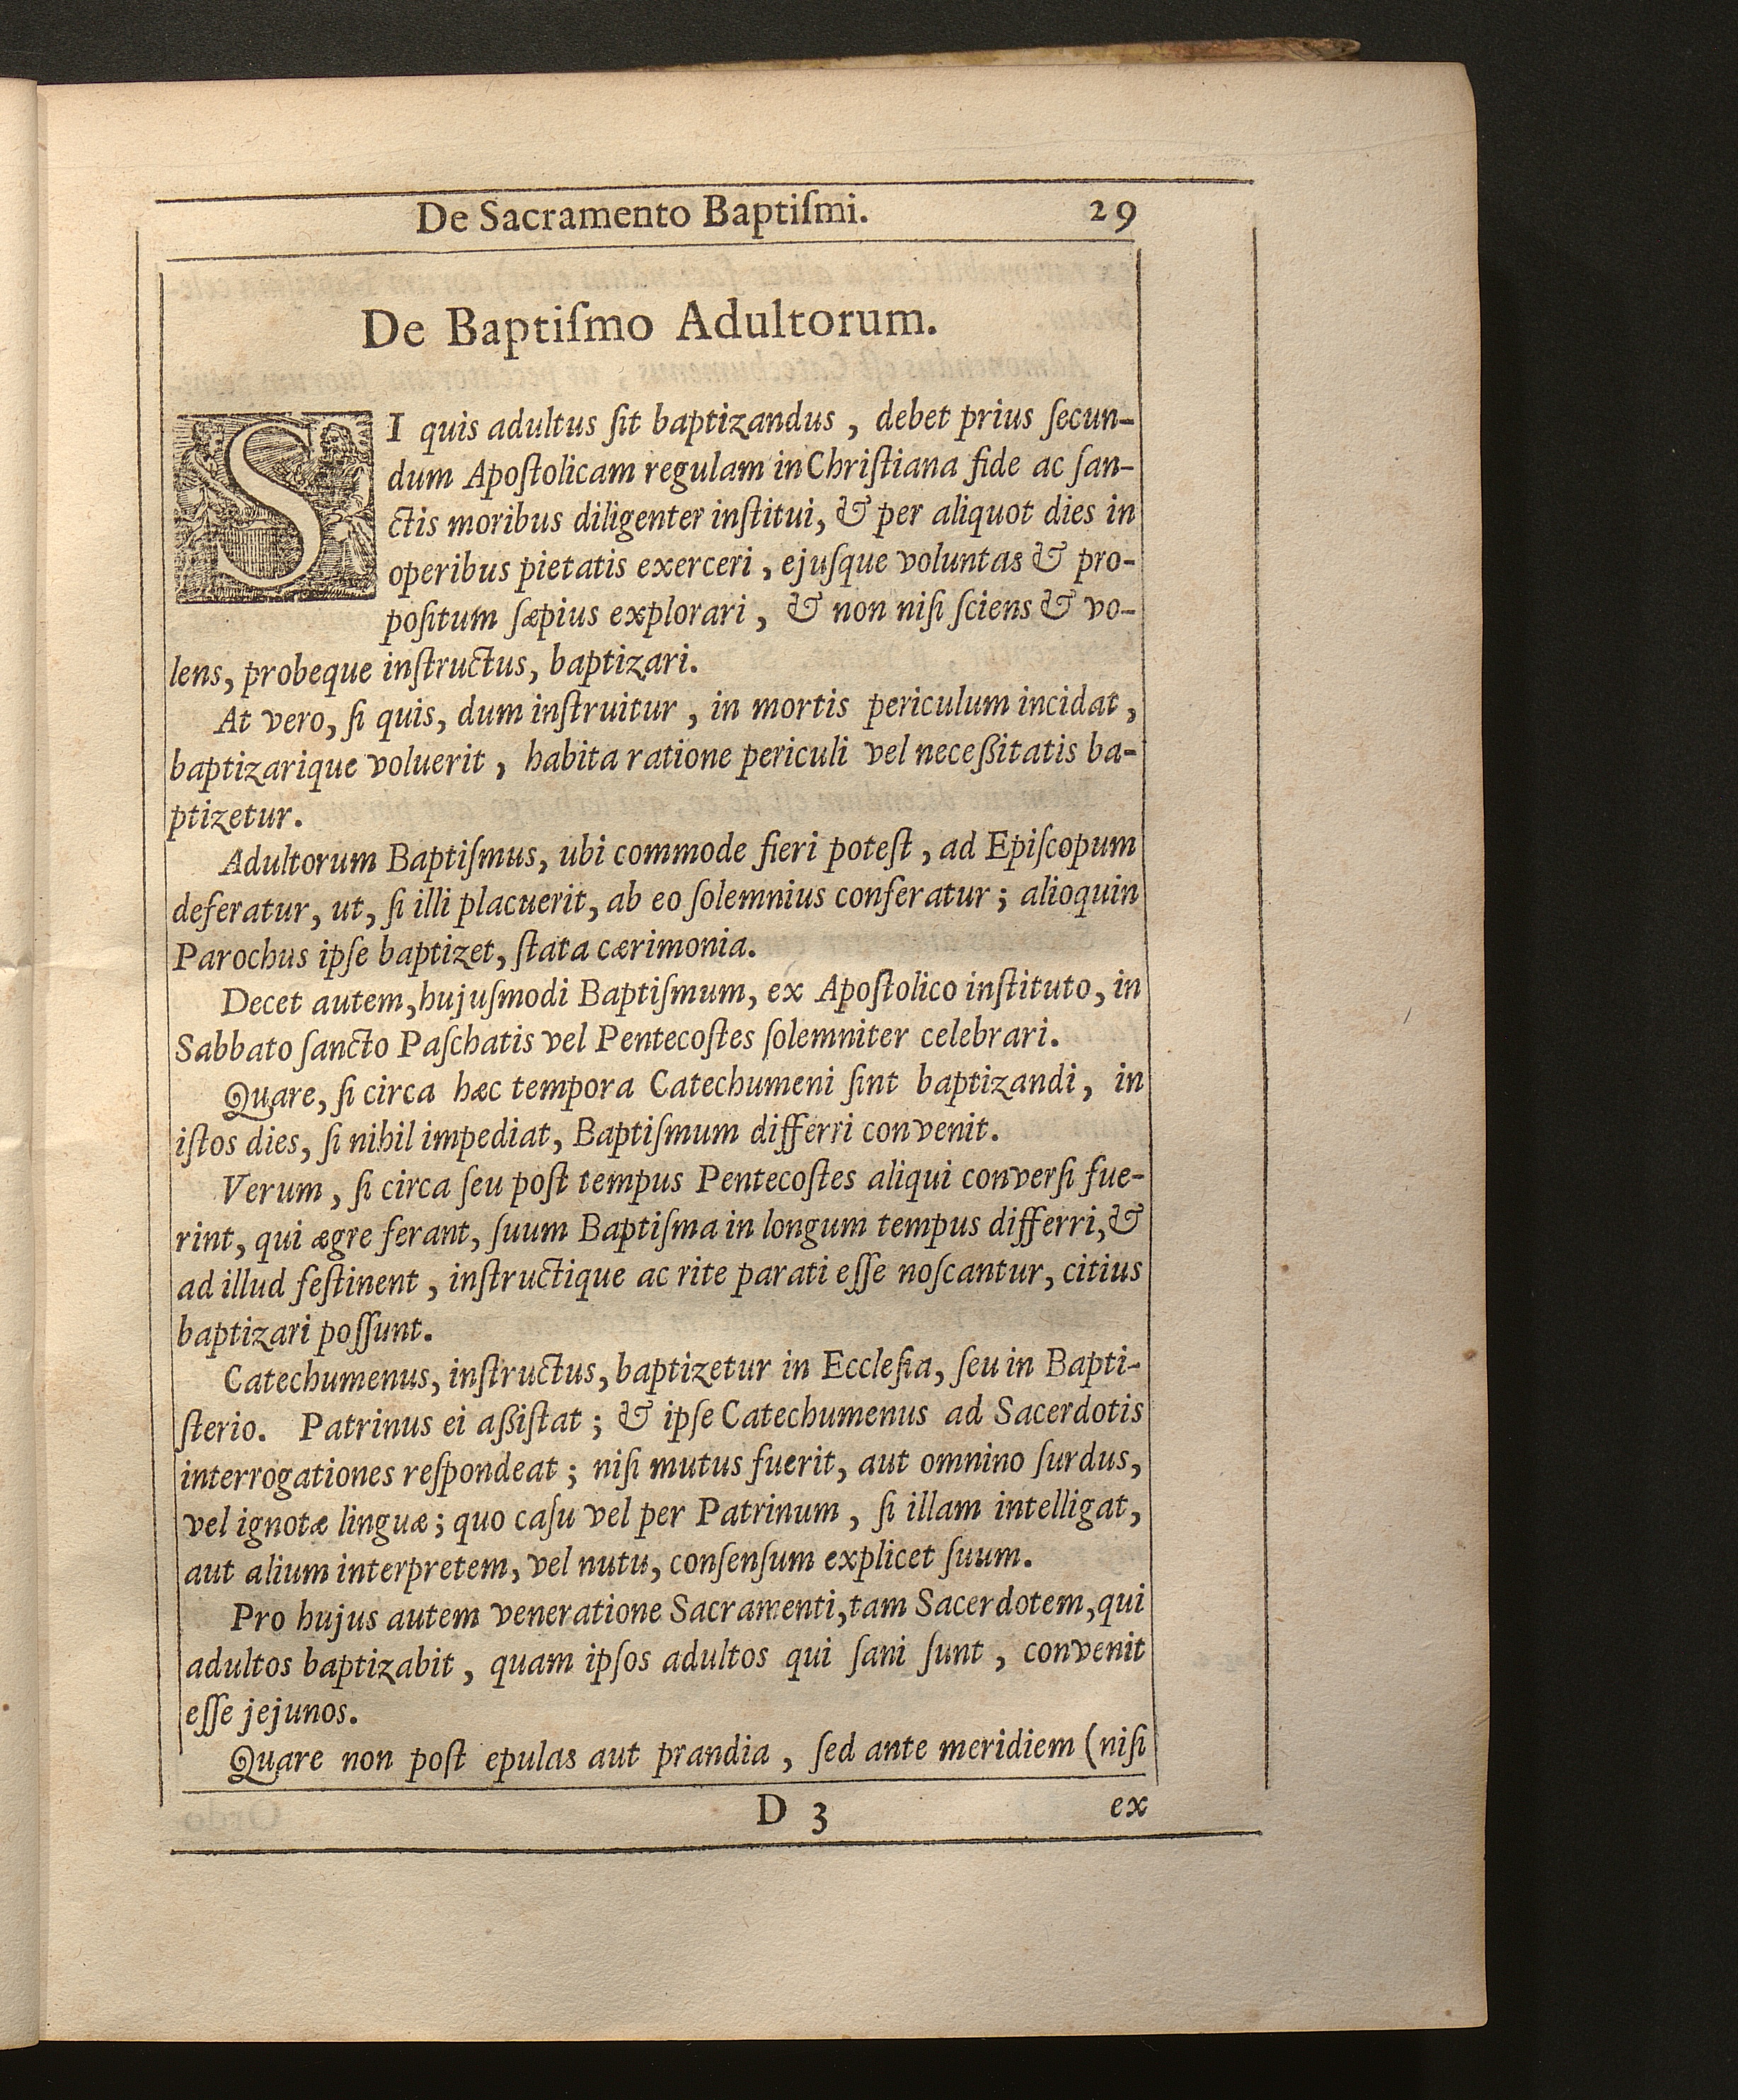 De Sacramento Baptiſmi. 29
De Baptiſmo Adultorum.
SI quis adultus ſit baptizandus, debet prius ſecun-
dum Apoſtolicam regulam in Chriſtiana fide ac ſan-
ctis moribus diligenter inſtitui, & per aliquot dies in
operibus pietatis exerceri, ejuſque voluntas & pro-
poſitum ſæpius explorari, & non niſi ſciens & vo-
lens, probeque inſtructus, baptizari.
At vero, ſi quis, dum inſtruitur, in mortis periculum incidat,
baptizarique voluerit, habita ratione periculi vel neceßitatis ba-
ptizetur.
Adultorum Baptiſmus, ubi commode fieri poteſt, ad Epiſcopum
deferatur, ut, ſi illi placuerit, ab eo ſolemnius conferatur; alioquin
Parochus ipſe baptizet, ſtata cærimonia.
Decet autem, hujuſmodi Baptiſmum, ex Apoſtolico inſtituto, in
Sabbato ſancto Paſchatis vel Pentecoſtes ſolemniter celebrari.
Quare, ſi circa hæc tempora Catechumeni ſint baptizandi, in
iſtos dies, ſi nihil impediat, Baptiſmum differri convenit.
Verum, ſi circa ſeu poſt tempus Pentecoſtes aliqui converſi fue-
rint, qui ægre ferant, ſuum Baptiſma in longum tempus differri, &
ad illud feſtinent, inſtructique ac rite parati eſſe noſcantur, citius
baptizari poſſunt.
Catechumenus, inſtructus, baptizetur in Eccleſia, ſeu in Bapti-
ſterio. Patrinus ei aßiſtat; & ipſe Catechumenus ad Sacerdotis
interrogationes reſpondeat; niſi mutus fuerit, aut omnino ſurdus,
vel ignotæ linguæ; quo caſu vel per Patrinum, ſi illam intelligat,
aut alium interpretem, vel nutu, conſenſum explicet ſuum.
Pro hujus autem veneratione Sacramenti, tam Sacerdotem, qui
adultos baptizabit, quam ipſos adultos qui ſani ſunt, convenit
eſſe jejunos.
Quare non poſt epulas aut prandia, ſed ante meridiem (niſi
D 3 ex